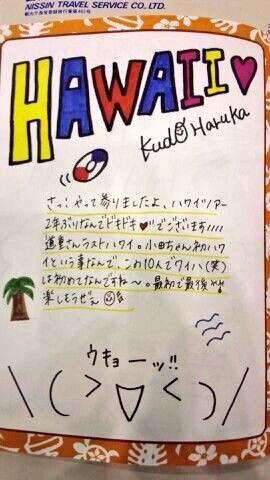 NISSIN TRAVEL SERVICE CO., LTD.
観光庁長官登録旅行業第
HAWAII♥
Kudo Haruka
さっ!やって参りましたよ、ハワイツアー
2年ぶりなんでドキドキ♥でございます!!!!
道重さんラストハワイ。小田ちゃん初ハワ
イという事なんで、この10人でワイハ(笑)
は初めてなんですね〜。最初で最後!!
楽しもうぜぇ
ウキョーッ!!
\(>▽<)/